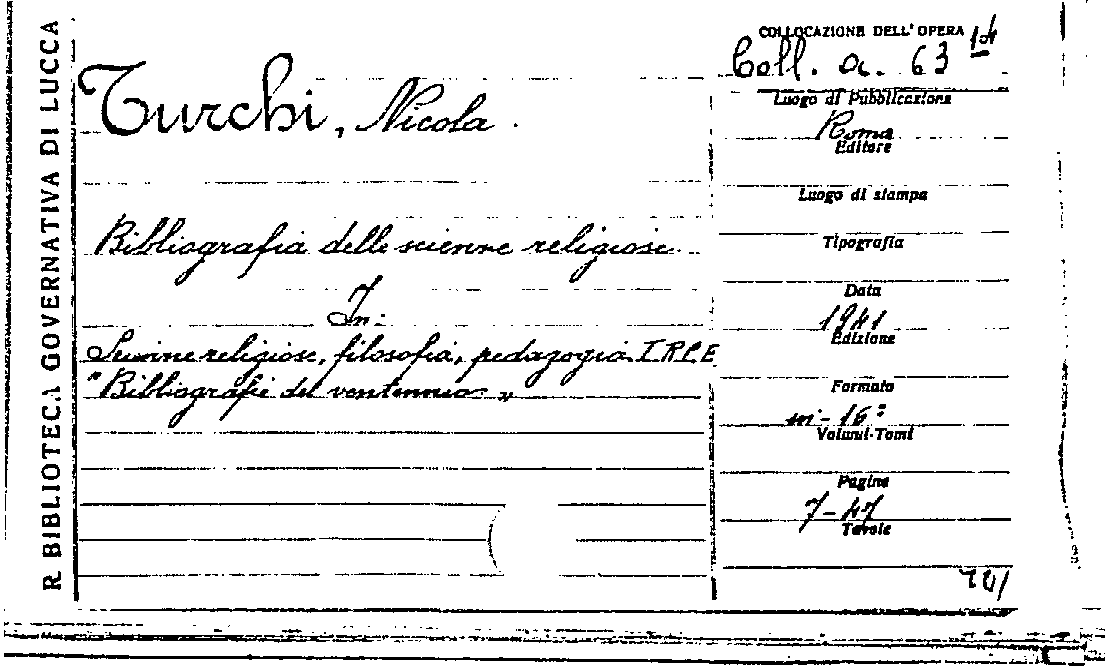 R. BIBLIOTECA GOVERNATIVA DI LUCCA
Turchi, Nicola.
Bibliografia delle scienze religiose.
In:
Scienze religiose, filosofia, pedagogia I.R.C.E
"Bibliografie del ventennio"
COLLOCAZIONE DELL'OPERA
Coll. a. 63 14
Luogo di Pubblicazione
Roma
Editore
Luogo di stampa
Tipografia
Data
1941
Edizione
Formato
in-16º
Volumi-Tomi
Pagine
7-47
Tavole